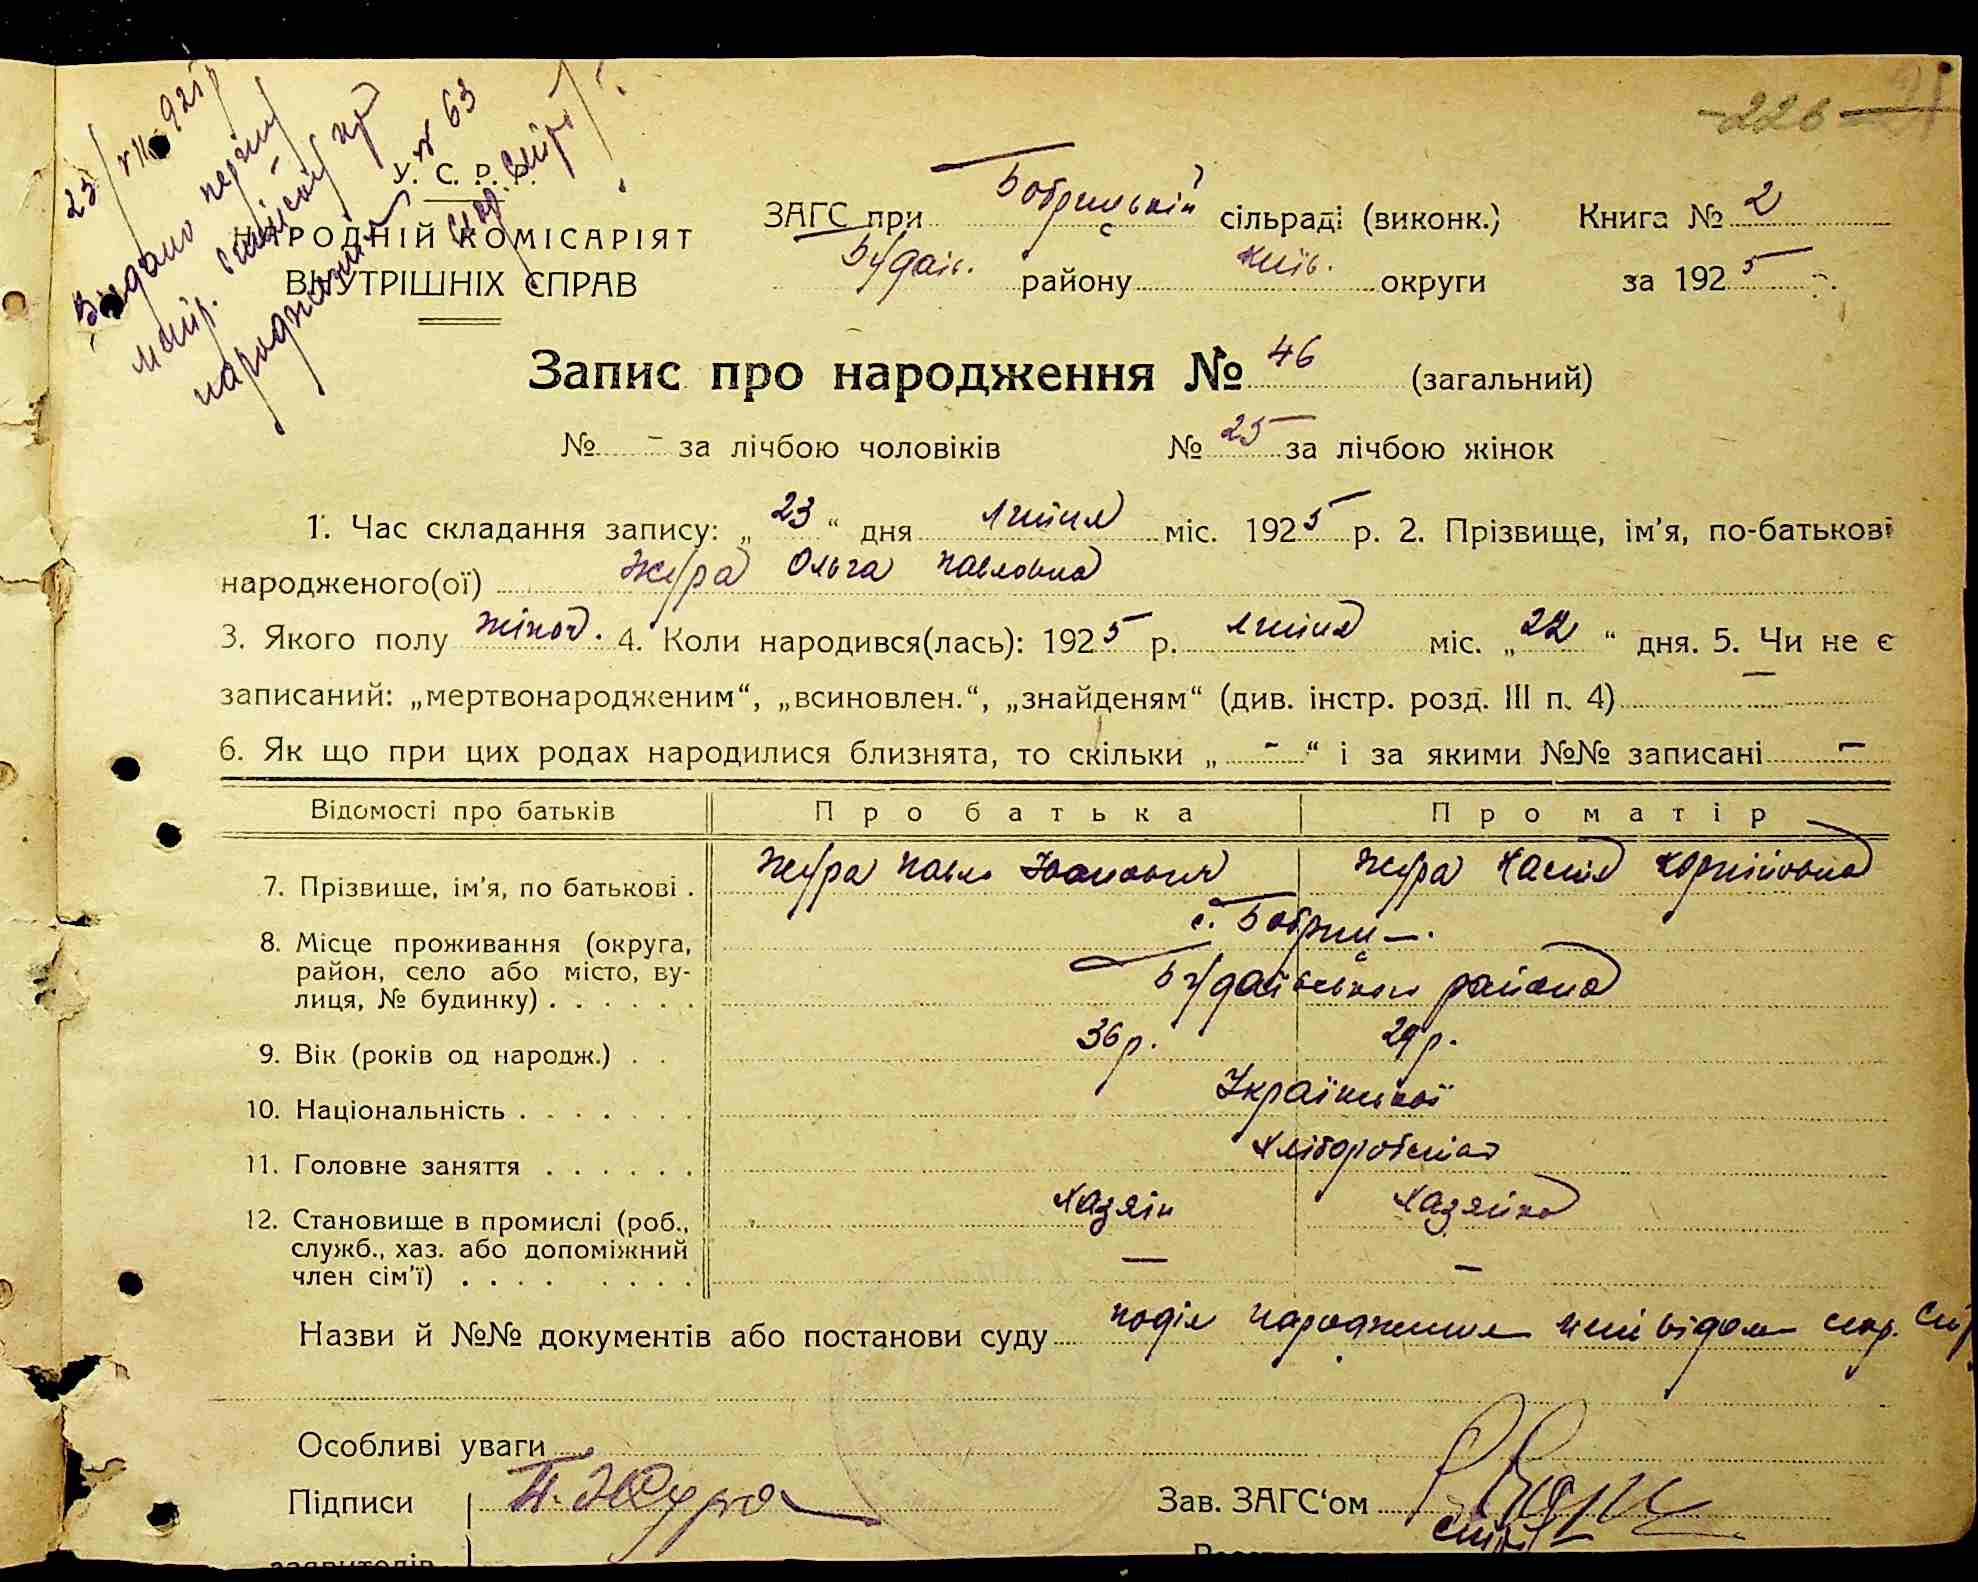 23/VII 925 р
Видано першу
№ 63
народження
-226-
У. С. Р. Р.
НАРОДНІЙ КОМІСАРІЯТ
ВНУТРІШНІХ СПРАВ
ЗАГС при Бобрицькій сільраді (виконк.) Книга № 2
Будаїв. району Київ. округи за 1925 р.
Запис про народження № 46 (загальний)
№ - за лічбою чоловіків № 25 за лічбою жінок
1. Час складання запису: „23“ дня липня міс. 1925 р. 2. Прізвище, ім'я, по-батькові
народженого(ої) Жура Ольга Павловна
3. Якого полу жіноч. 4. Коли народився(лась): 1925 р. липня міс. „22“ дня. 5. Чи не є
записаний: „мертвонародженим“, „всиновлен.“, „знайденям“ (див. інстр. розд. III п. 4) —
6. Як що при цих родах народилися близнята, то скільки „-“ і за якими №№ записані —
Відомості про батьків Про батька Про матір
7. Прізвище, ім'я, по батькові . Жура Павло Іванович Жура Настя Корніївна
8. Місце проживання (округа, с. Бобриц—.
район, село або місто, ву-
лиця, № будинку) . . . . . . Будаївського района
9. Вік (років од народж.) . . 36 р. 29 р.
10. Національність . . . . . . . Української
11. Головне заняття . . . . . . Хліборобство
12. Становище в промислі (роб., Хазяїн Хазяйка
служб., хаз. або допоміжний
член сім'ї) . . . . . . . . . — —
Назви й №№ документів або постанови суду подія народження
Особливі уваги
Підписи П. Жура Зав. ЗАГС'ом
заявителів